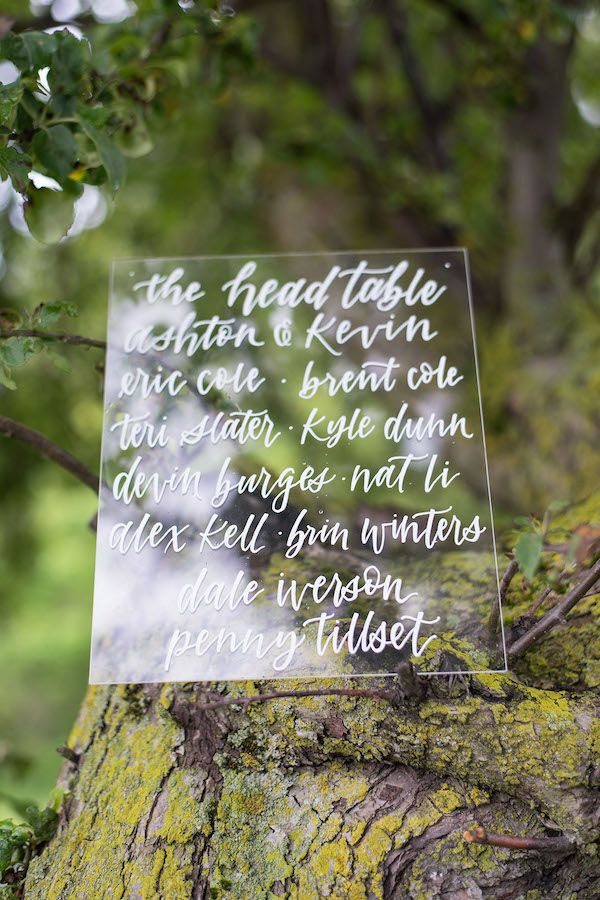 the head table
ashton & Kevin
eric cole · brent cole
teri slater · Kyle dunn
devin burges · nat li
alex Kell · brin winters
dale iverson
penny tillset